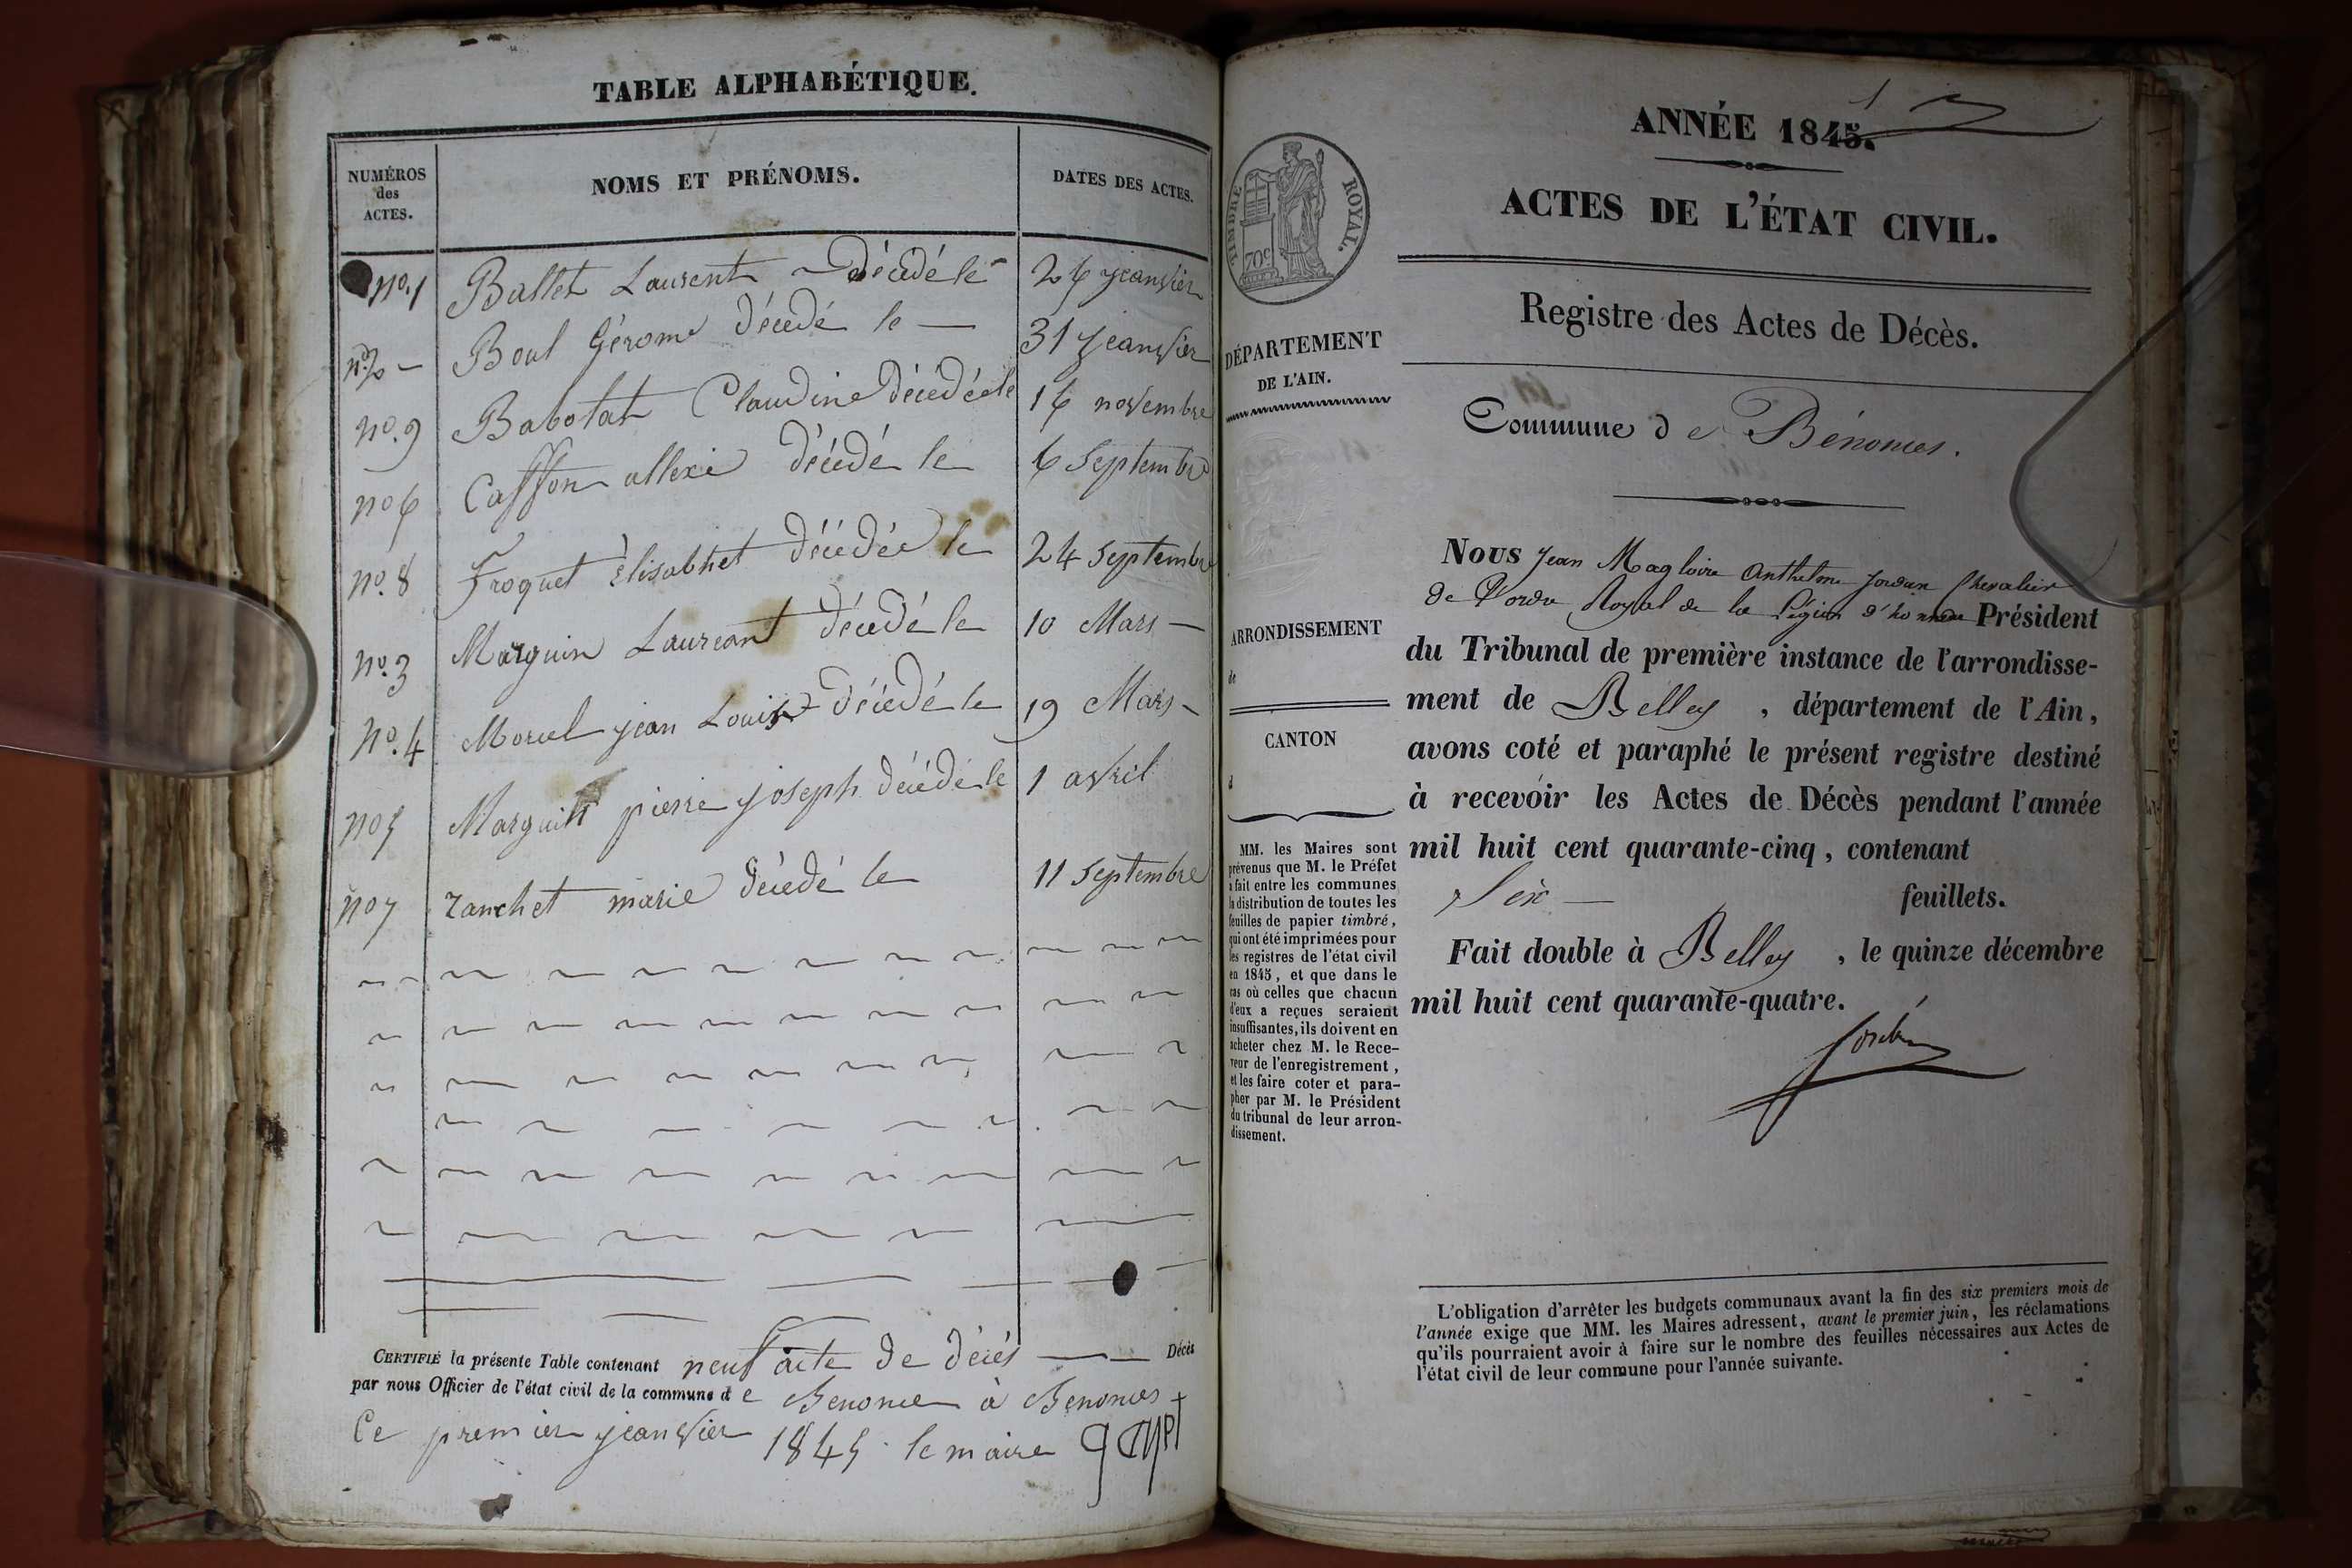 TABLE ALPHABÉTIQUE.
NUMÉROS des ACTES.
NOMS ET PRÉNOMS.
DATES DES ACTES.
no. 1 Ballet Laurent décédé le 26 jeanvier
no. 2 Boul Gérome décédé le 31 jeanvier
no. 9 Babolat Claudine décédée le 16 novembre
no 6 Caffon allexi décédé le 6 Septembre
no. 8 Froquet Élisabhet décédée le 24 Septembre
no. 3 Marguin Laureant décédé le 10 Mars
no. 4 Morcel jean Louis décédé le 19 Mars
no 5 Marguin pierre joseph décédé le 1 avril
no 7 zanchet marie décédé le 11 Septembre
CERTIFIÉ la présente Table contenant neuf acte de décés Décès
par nous Officier de l'état civil de la commune d e Benonce à Benonces
Ce premier jeanvier 1845 le maire
1
ANNÉE 1845.
ACTES DE L'ÉTAT CIVIL.
Registre des Actes de Décès.
TIMBRE ROYAL.
70c
DÉPARTEMENT
DE L'AIN.
Commune d e Bénonces.
ARRONDISSEMENT
de
CANTON
d
MM. les Maires sont
prévenus que M. le Préfet
a fait entre les communes
la distribution de toutes les
feuilles de papier timbré,
qui ont été imprimées pour
les registres de l'état civil
en 1845, et que dans le
cas où celles que chacun
d'eux a reçues seraient
insuffisantes, ils doivent en
acheter chez M. le Rece-
veur de l'enregistrement,
et les faire coter et para-
pher par M. le Président
du tribunal de leur arron-
dissement.
Nous Jean Magloire Anthelme Jordan Chevalier
de l'ordre Royal de la Légion d'honneur Président
du Tribunal de première instance de l'arrondisse-
ment de Belley, département de l'Ain,
avons coté et paraphé le présent registre destiné
à recevoir les Actes de Décès pendant l'année
mil huit cent quarante-cinq, contenant
Six feuillets.
Fait double à Belley, le quinze décembre
mil huit cent quarante-quatre.
L'obligation d'arrêter les budgets communaux avant la fin des six premiers mois de
l'année exige que MM. les Maires adressent, avant le premier juin, les réclamations
qu'ils pourraient avoir à faire sur le nombre des feuilles nécessaires aux Actes de
l'état civil de leur commune pour l'année suivante.